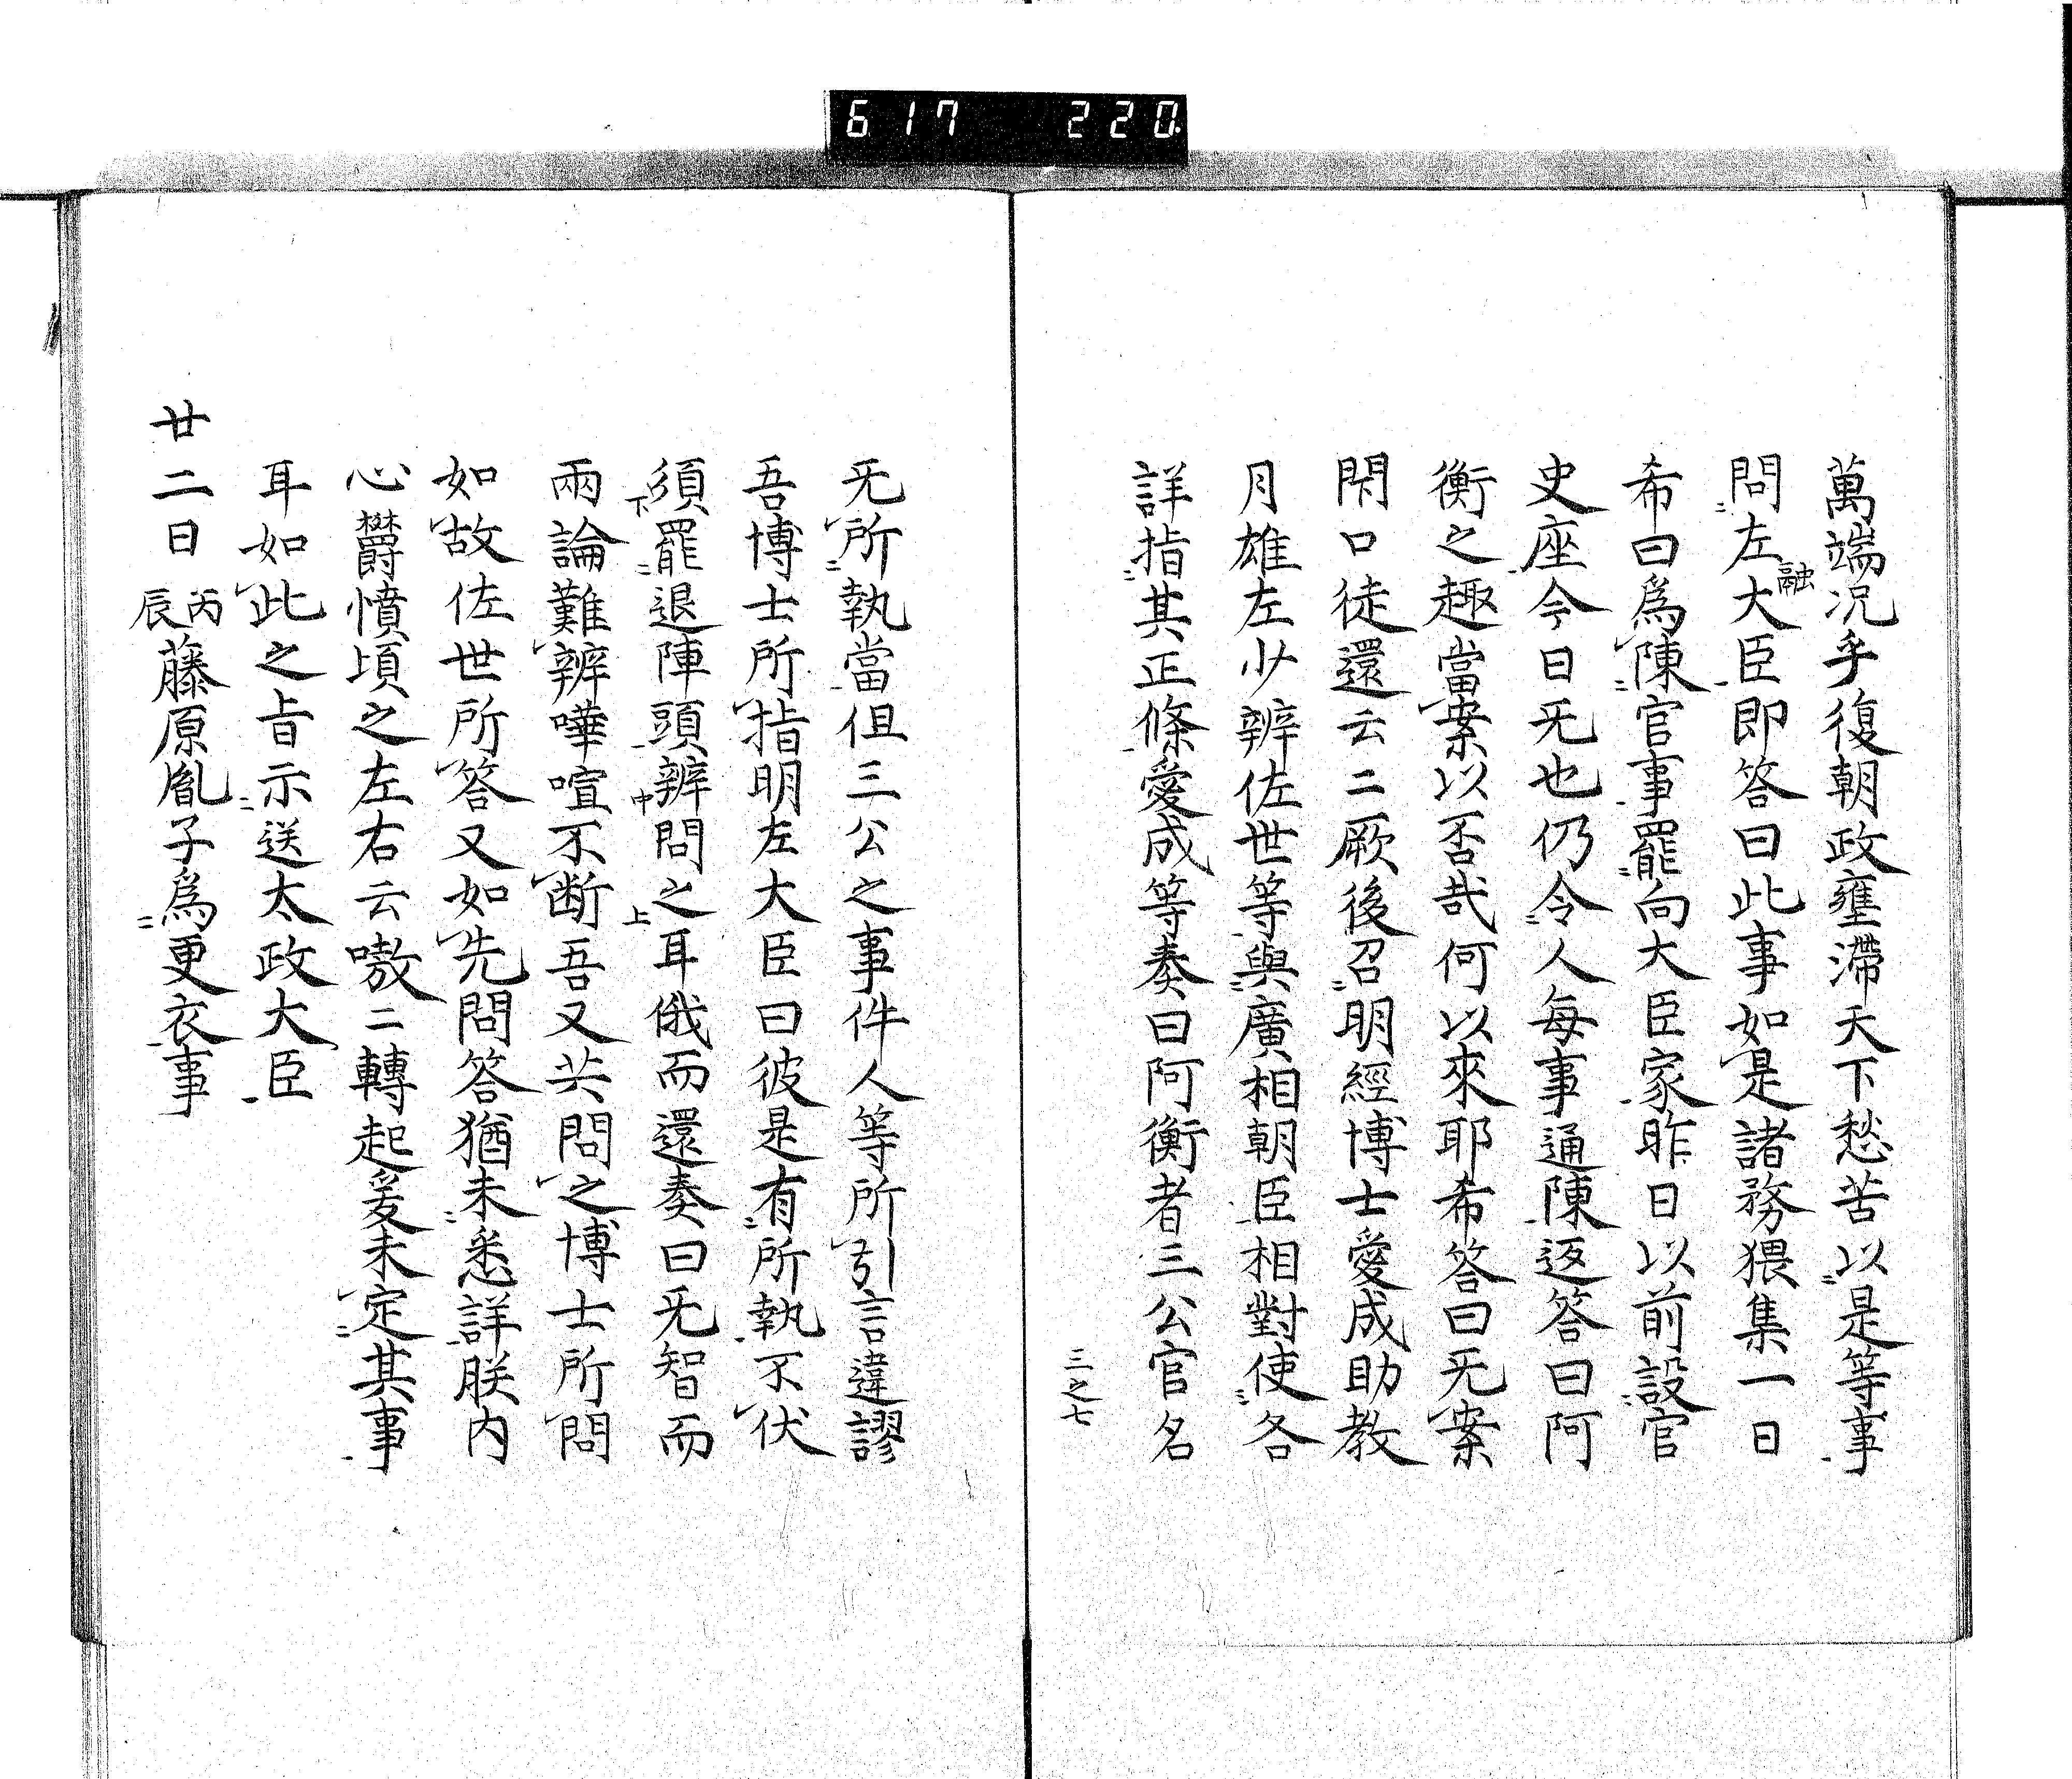 617 220
萬端况乎復朝政壅滯天下愁苦以是等事
問左大臣即答曰此事如是諸務猥集一日
融
希曰爲陳官事罷向大臣家昨日以前設官
史座今日旡也仍令人每事通陳返答曰阿
衡之趣當案以否哉何以來耶希答曰旡案
閇口徒還云二厥後召明經博士愛成助教
月雄左少辨佐世等與廣相朝臣相對使各
詳指其正條愛成等奏曰阿衡者三公官名
三之七
旡所執當但三公之事件人等所引言違謬
吾博士所指明左大臣曰彼是有所執不伏
須罷退陣頭辨問之耳俄而還奏曰旡智而
下 中 上
兩論難辨嘩喧不断吾又共問之博士所問
如故佐世所答又如先問答猶未悉詳朕内
心欝憤頃之左右云嗷二轉起爰未定其事
耳如此之旨示送太政大臣
廿二日丙辰藤原胤子爲更衣事